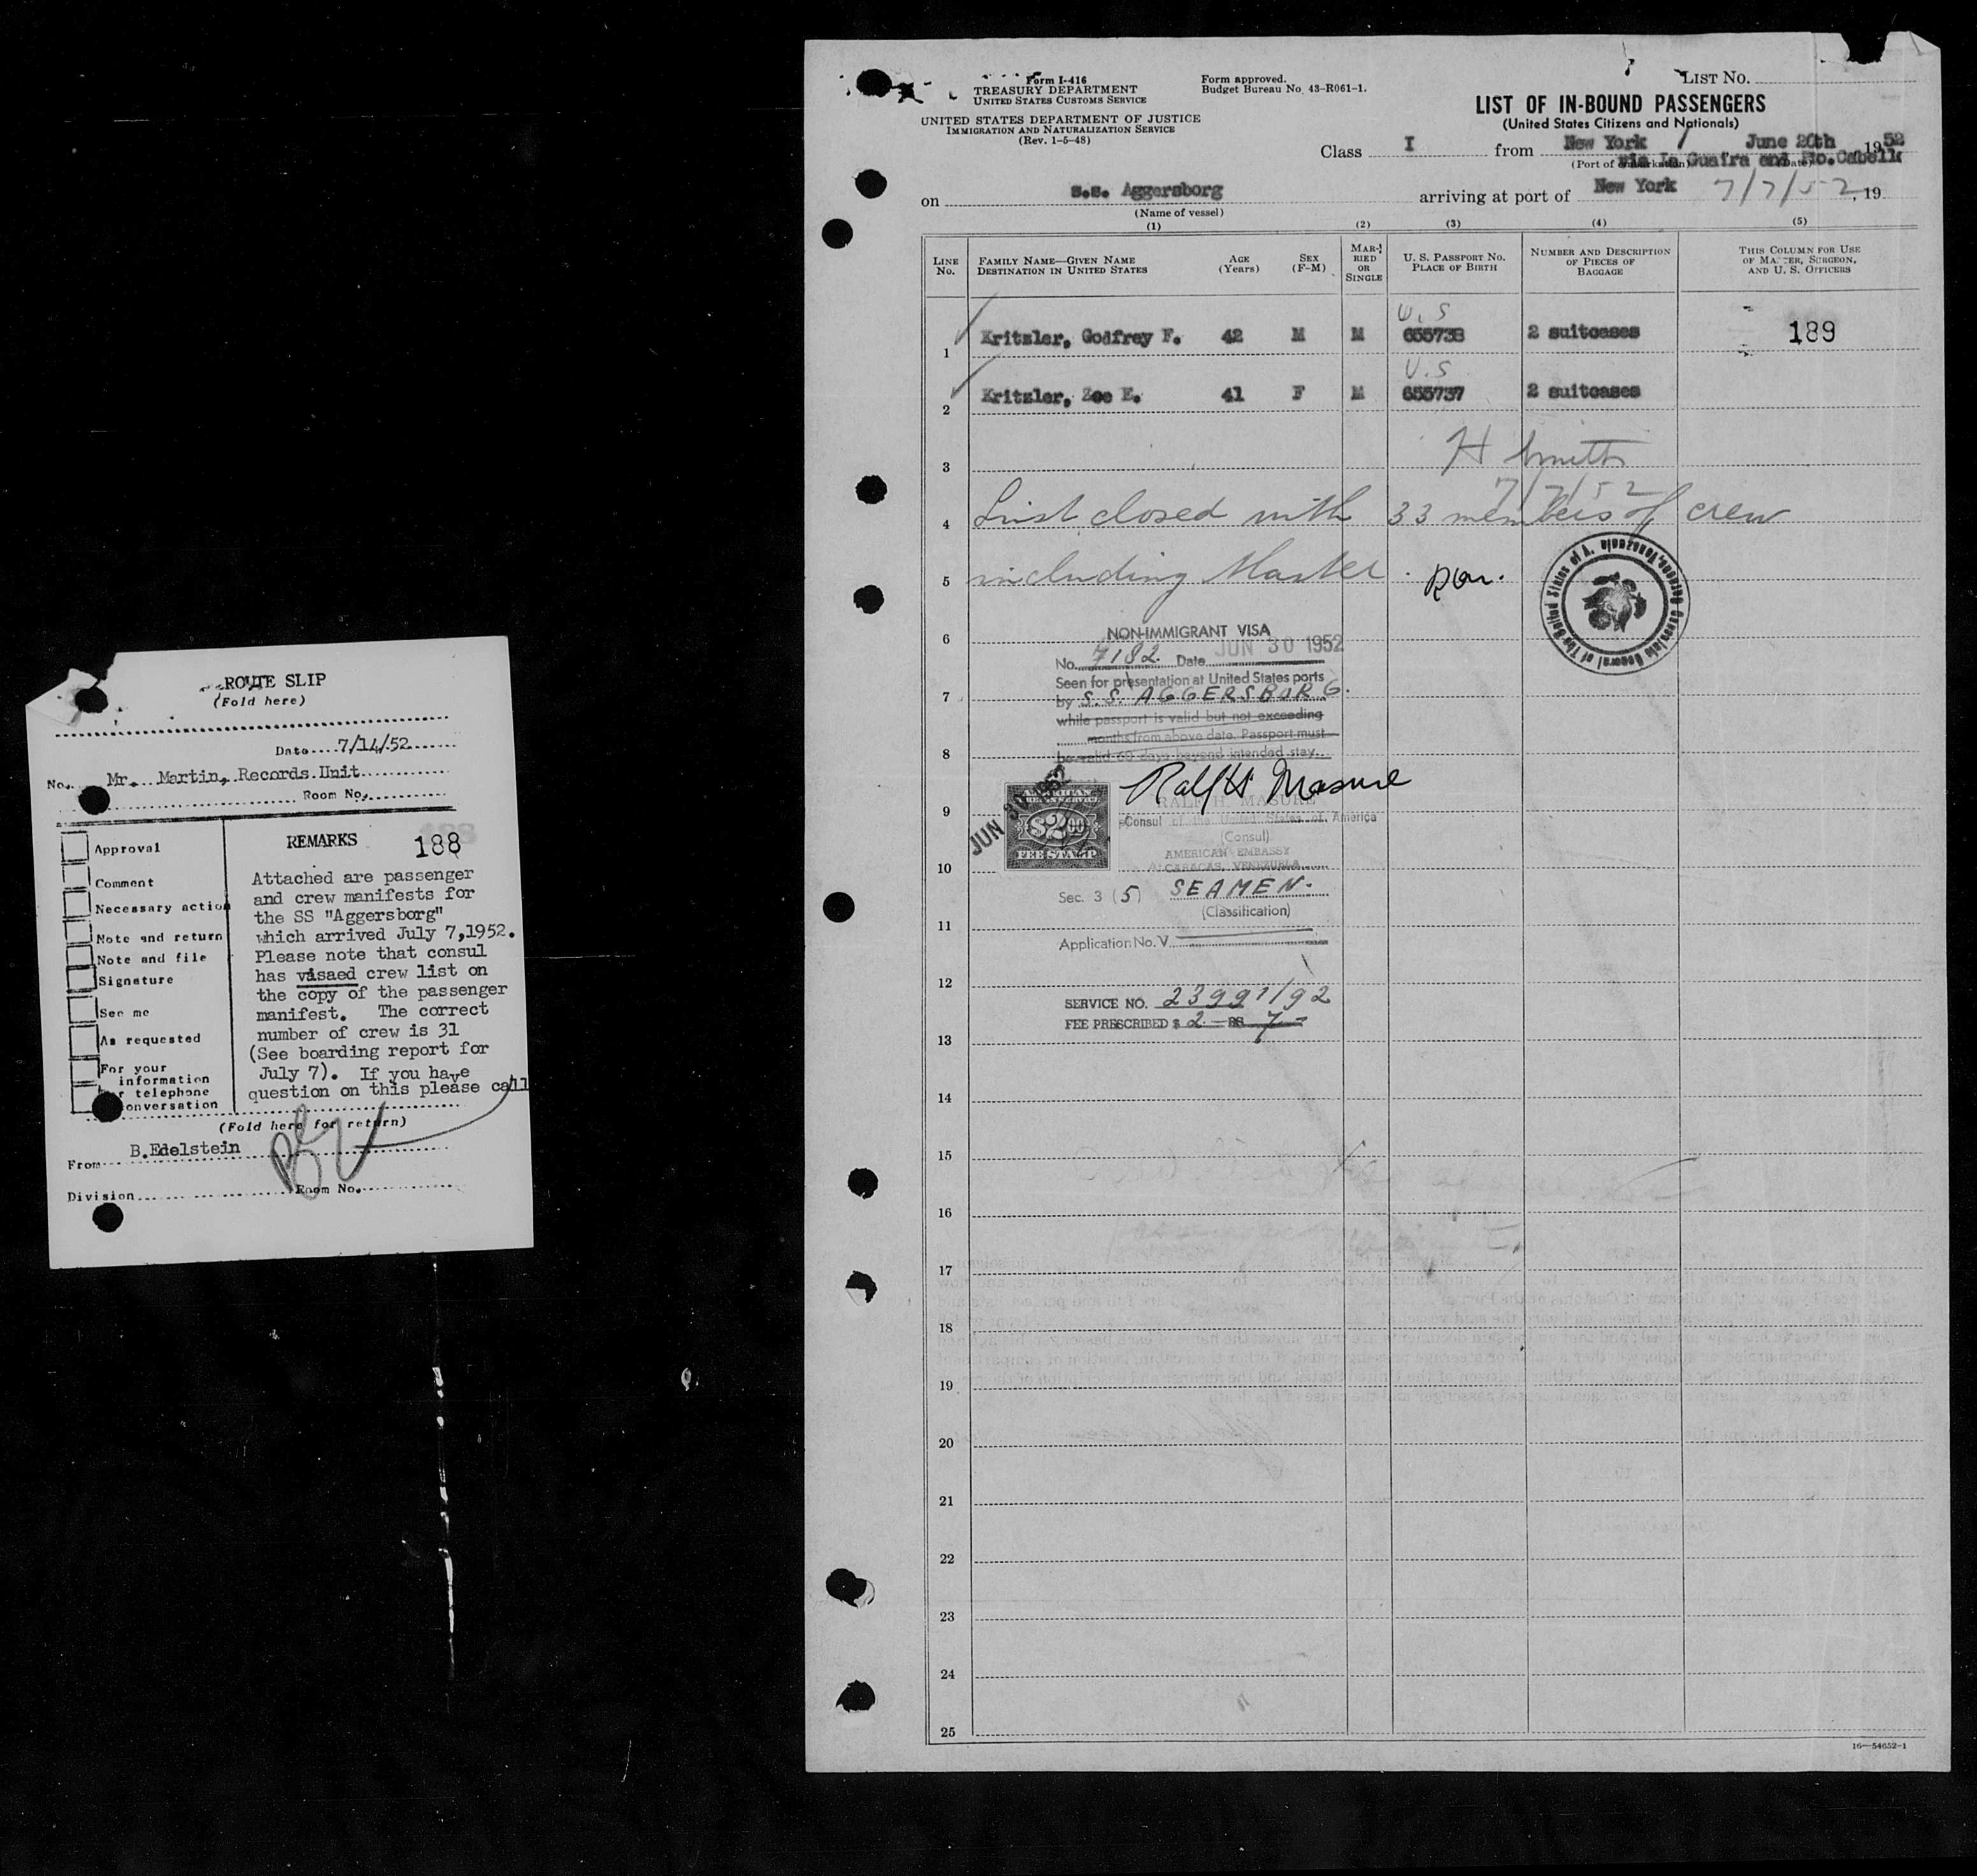 ROUTE SLIP
(Fold here)
Date 7/14/52
No. Mr. Martin, Records Unit
Room No.
REMARKS 188
Approval
Comment
Necessary action
Note and return
Note and file
Signature
See me
As requested
For your information
telephone
conversation
Attached are passenger
and crew manifests for
the SS "Aggersborg"
which arrived July 7,1952.
Please note that consul
has visaed crew list on
the copy of the passenger
manifest. The correct
number of crew is 31
(See boarding report for
July 7). If you have
question on this please call
(Fold here for return)
From B.Edelstein
Division Room No.
Form I-416
TREASURY DEPARTMENT
UNITED STATES CUSTOMS SERVICE
UNITED STATES DEPARTMENT OF JUSTICE
IMMIGRATION AND NATURALIZATION SERVICE
(Rev. 1-5-48)
Form approved.
Budget Bureau No. 43-R061-1.
LIST NO.
LIST OF IN-BOUND PASSENGERS
(United States Citizens and Nationals)
Class I from New York June 20th 1952
(Port of embarkation) (Date)
via La Guaira and Pto.Cabello
on s.s. Aggersborg arriving at port of New York 7/7/52, 19
(Name of vessel)
(1) (2) (3) (4) (5)
LINE NO.
FAMILY NAME—GIVEN NAME
DESTINATION IN UNITED STATES
AGE (Years)
SEX (F-M)
MARRIED OR SINGLE
U. S. PASSPORT NO.
PLACE OF BIRTH
NUMBER AND DESCRIPTION OF PIECES OF BAGGAGE
THIS COLUMN FOR USE OF MASTER, SURGEON, AND U. S. OFFICERS
U.S
1 Kritzler, Godfrey F. 42 M M 655738 2 suitcases 189
U.S
2 Kritzler, Zoe E. 41 F M 655737 2 suitcases
3 H Smith
7/7/52
4 List closed with 33 members of crew
5 including Master.
6 NON-IMMIGRANT VISA
No. 7182 Date JUN 30 1952
Seen for presentation at United States ports
7 by S.S. AGGERSBORG.
while passport is valid but not exceeding
months from above date. Passport must
8 be valid 60 days beyond intended stay.
Consulate General of The United States of America, Venezuela
JUN 30 1952
AMERICAN
FOREIGN SERVICE
$2.00
FEE STAMP
Ralph H Masure
RALPH H. MASURE
9 Consul of the United States of America
(Consul)
AMERICAN EMBASSY
10 At CARACAS, VENEZUELA
Sec. 3 (5) SEAMEN.
(Classification)
11
Application No. V
12
SERVICE NO. 23991/92
FEE PRESCRIBED $ 2
13
14
15
16
17
18
19
20
21
22
23
24
25
16—54652-1